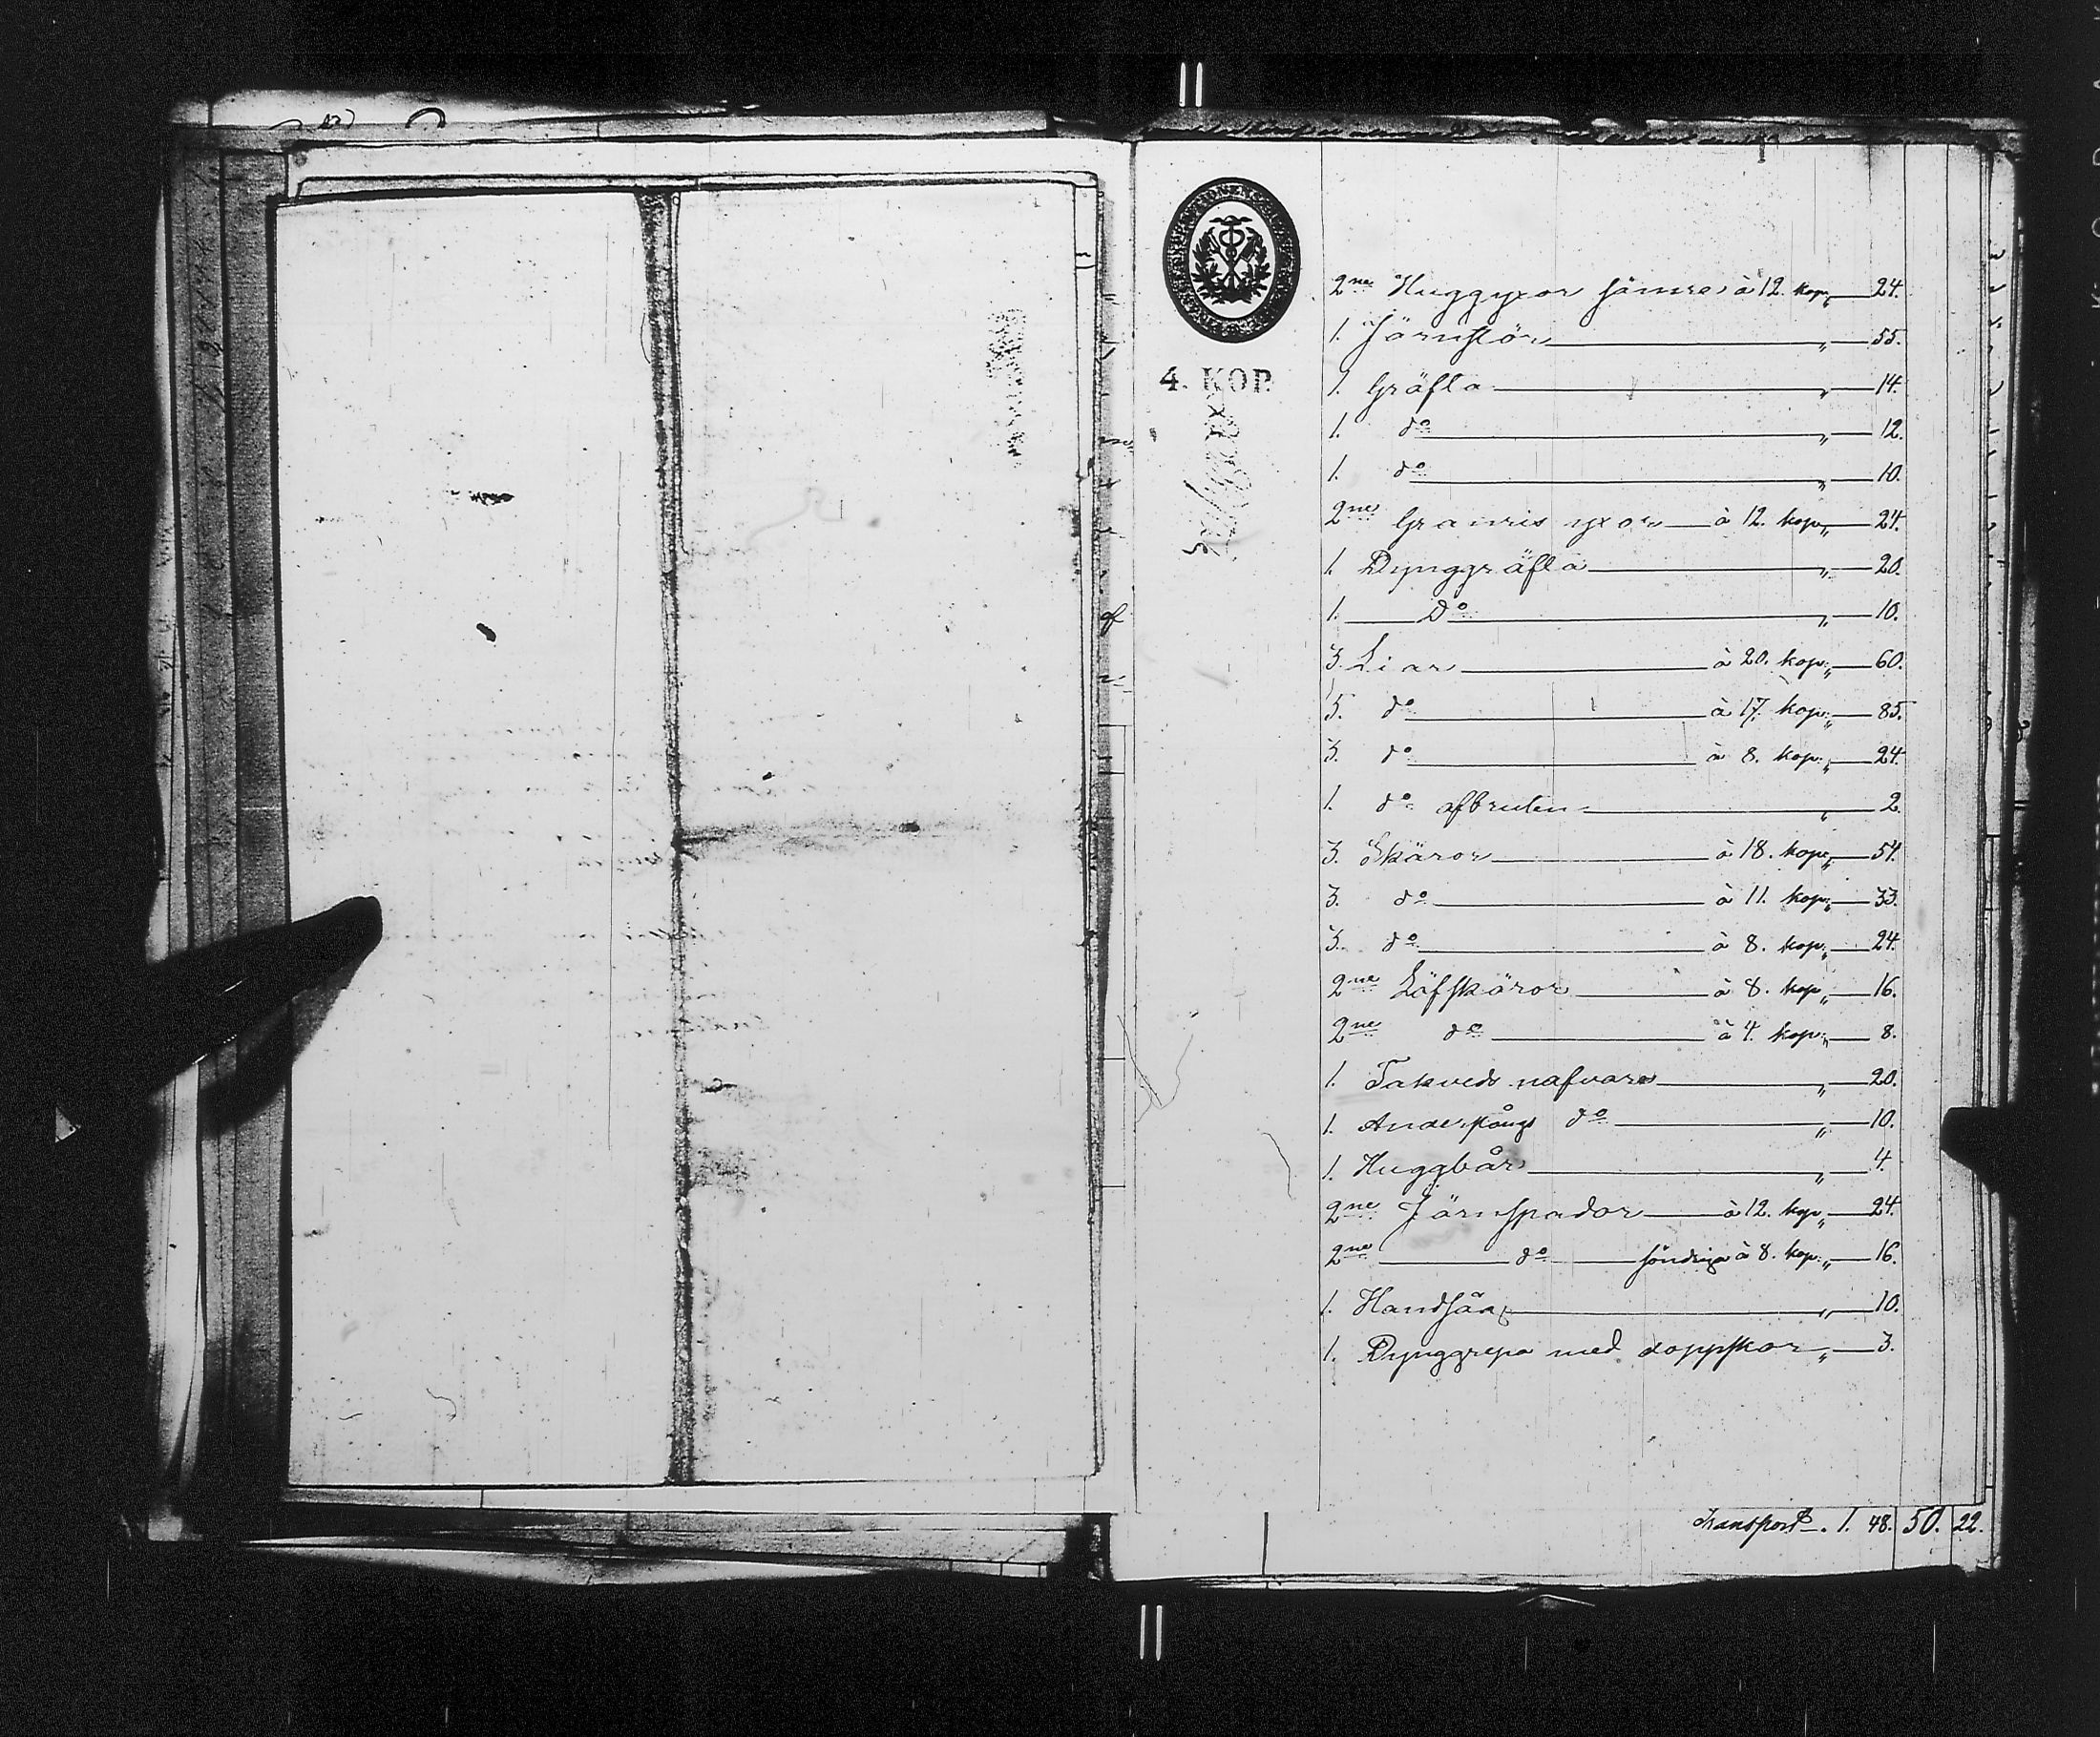 4. KOP.
2ne Huggyxor sämre à 12. kop. „ 24.
1. Järnstör „ 55.
1. Gräfta „ 14.
1. do „ 12.
1. do „ 10.
2ne Granris yxor à 12. kop. „ 24.
1. Dynggräfta „ 20.
1. Do „ 10.
3. Liar à 20. kop. „ 60.
5. do à 17. kop. „ 85.
3. do à 8. kop. „ 24.
1. do afbruten „ 2.
3. Skäror à 18. kop. „ 54.
3. do à 11. kop. „ 33.
3. do à 8. kop. „ 24.
2ne Löfskäror à 8. kop. „ 16.
2ne do à 4. kop. „ 8.
1. Takveds nafvare „ 20.
1. do „ 10.
1. Huggbår „ 4.
2ne Järnspador à 12. kop. „ 24.
2ne do söndriga à 8. kop. „ 16.
1. Handsåg „ 10.
1. Dynggrepa med doppskor „ 3.
Transport. 1. 48. 50. 22.